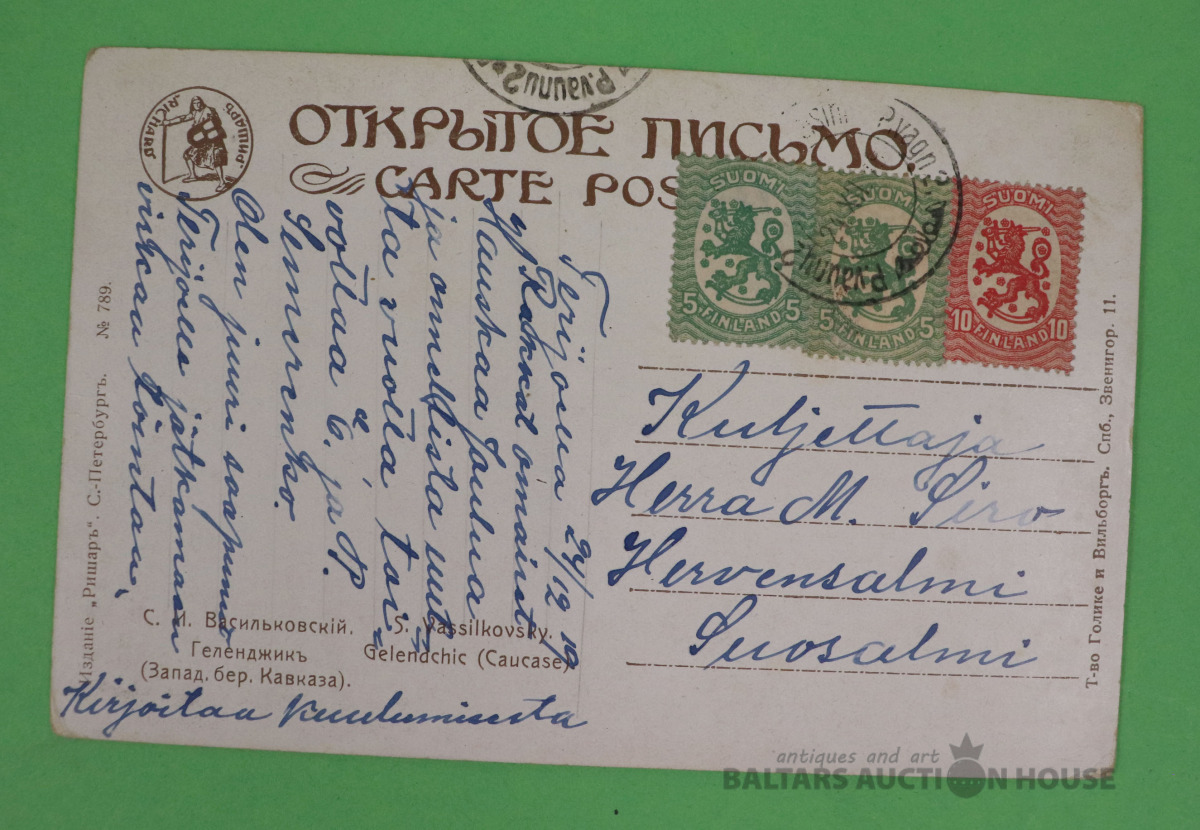 RICHARD
РИШАРЪ
ОТКРЫТОЕ ПИСЬМО.
CARTE POS
P.vaunu 2
SUOMI
SUOMI
SUOMI
5 FINLAND 5
5 FINLAND 5
10 FINLAND 10
Terijoki 24/12 19
Rakkat omaiset
Hauskaa Joulua
ja onnellista uut
ta vuotta toi
vottaa E. ja P.
Simirenko.
Olen juuri saapunut
Terijoelle jatkamaan
virkaa
Kirjoitaa kuulumisesta
Kuljettaja
Herra M. Siro
Hervensalmi
Suosalmi
С. И. Васильковскій.
Геленджикъ
(Запад. бер. Кавказа).
S. Vassilkovsky.
Gelendchic (Caucase)
Изданіе „Ришаръ“. С.-Петербургъ. № 789.
Т-во Голике и Вильборгъ. Спб., Звенигор. 11.
antiques and art
BALTARS AUCTION HOUSE